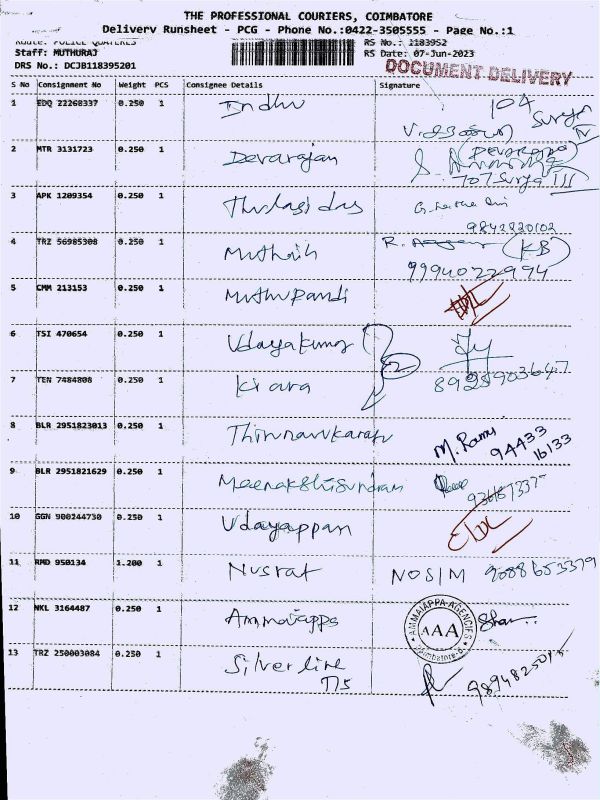 THE PROFESSIONAL COURIERS, COIMBATORE
Delivery Runsheet - PCG - Phone No.:0422-3505555 - Page No.:1
Route: POLICE QUATERES RS No.: 1183952
Staff: MUTHURAJ RS Date: 07-Jun-2023
DRS No.: DCJB118395201 DOCUMENT DELIVERY
S No Consignment No Weight PCS Consignee Details Signature
1 EDQ 22268337 0.250 1 Indhu 104 Surya IV
2 MTR 3131723 0.250 1 Devarajan (DEVARAJAN) 707 Surya III
3 APK 1209354 0.250 1 Thulasi das 9842820102
4 TRZ 56985308 0.250 1 Muthaih R. (KB) 99940722994
5 CMM 213153 0.250 1 Muthupandi
6 TSI 470654 0.250 1 Udayakumar 2
7 TEN 7484808 0.250 1 Kiara 8925903647
8 BLR 2951823013 0.250 1 Thirunavukarasu M. Ramu 94433 16133
9 BLR 2951821629 0.250 1 Meenakshisundram
10 GGN 900244730 0.250 1 Udayappan
11 RMD 950134 1.200 1 Nusrat NOSIM 9688653379
12 NKL 3164487 0.250 1 Ammaiapps AMMAIAPPA AGENCIES AAA Coimbatore-6
13 TRZ 250003084 0.250 1 Silverline